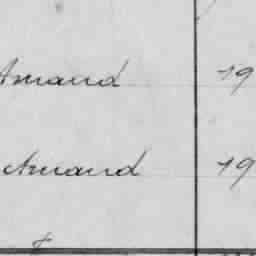 Amand 19
Amand 19